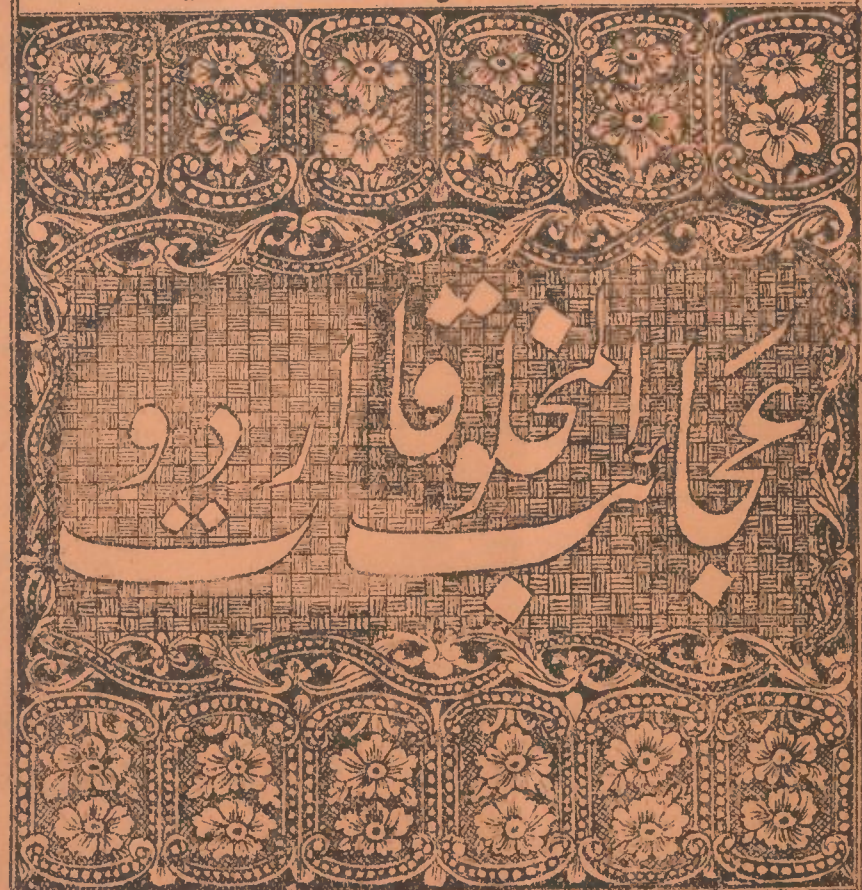 عجائب المخلوقات اردو